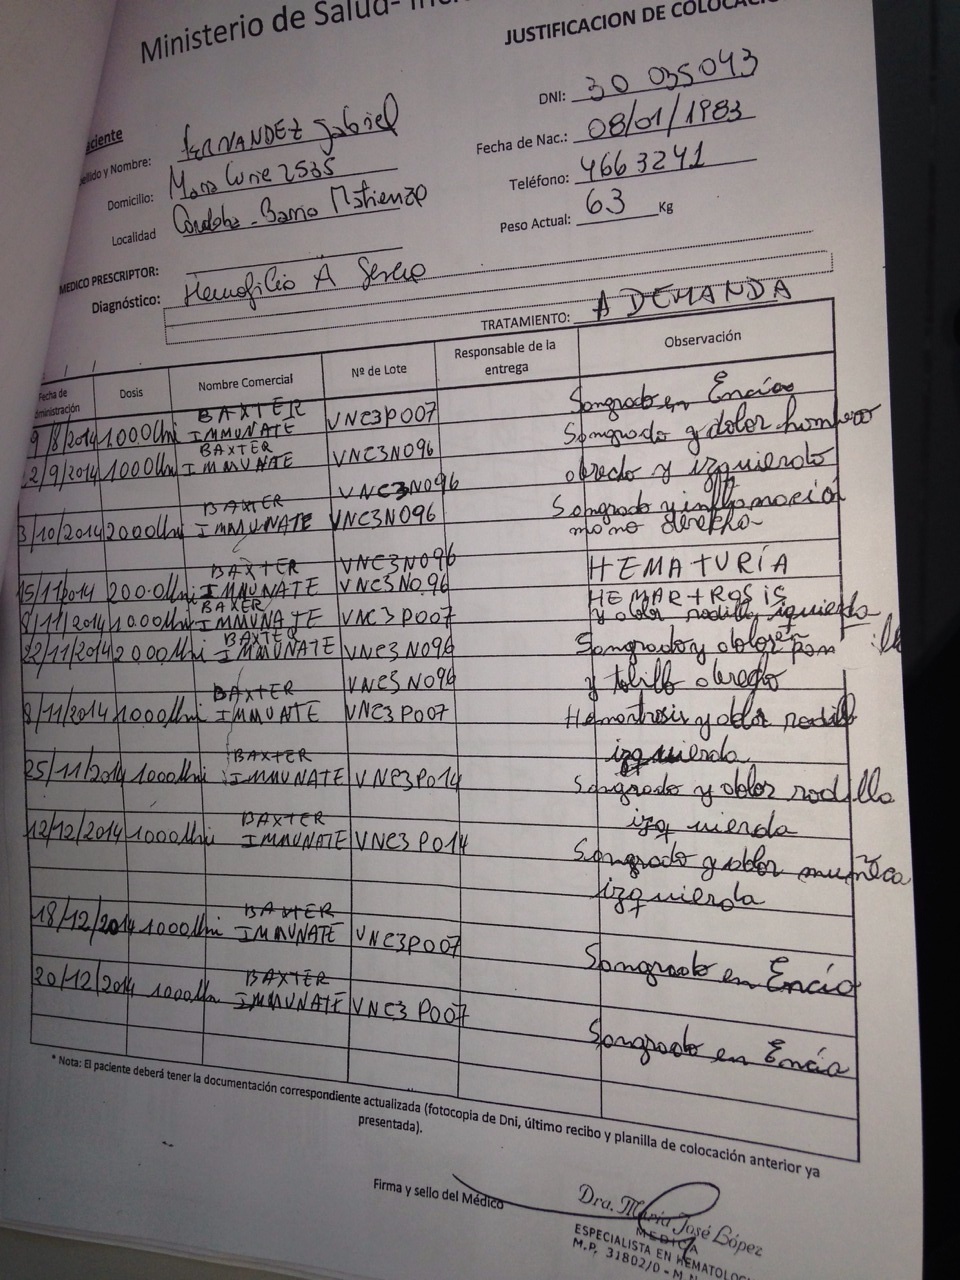 Ministerio de Salud-
JUSTIFICACION DE
DNI: 30 035043
Fecha de Nac.: 08/01/1983
Teléfono: 4663241
Peso Actual: 63 Kg
y Nombre: FERNANDEZ Gabriel
Domicilio: Maria Curie 2535
Localidad Cordoba - Barrio Matienzo
MEDICO PRESCRIPTOR:
Diagnóstico: Hemofilia A Severa
TRATAMIENTO: A DEMANDA
Fecha de Dosis Nombre Comercial Nº de Lote Responsable de la entrega Observación
9/8/2014 1000 Uni BAXTER IMMUNATE VNC3P007 Sangrado en Encías
2/9/2014 1000 Uni BAXTER IMMUNATE VNC3N096 Sangrado y dolor hombro
VNC3N096 derecho y izquierdo
3/10/2014 2000 Uni BAXTER IMMUNATE VNC3N096 Sangrado y inflamación
mano derecha
VNC3N096
15/11/2014 2000 Uni BAXTER IMMUNATE VNC3N096 HEMATURÍA
8/11/2014 1000 Uni BAXER IMMUNATE VNC3P007 HEMARTROSIS
y dolor rodilla izquierda
22/11/2014 2000 Uni BAXTER IMMUNATE VNC3N096 Sangrado y dolor en
VNC3N096 y tobillo derecho
8/11/2014 1000 Uni BAXTER IMMUNATE VNC3P007 Hemartrosis y dolor rodilla
izquierda
25/11/2014 1000 Uni BAXTER IMMUNATE VNC3P014 Sangrado y dolor rodilla
izquierda
12/12/2014 1000 Uni BAXTER IMMUNATE VNC3P014 Sangrado y dolor muñeca
izquierda
18/12/2014 1000 Uni BAXTER IMMUNATE VNC3P007 Sangrado en Encía
20/12/2014 1000 Uni BAXTER IMMUNATE VNC3P007 Sangrado en Encía
* Nota: El paciente deberá tener la documentación correspondiente actualizada (fotocopia de Dni, último recibo y planilla de colocación anterior ya
presentada).
Firma y sello del Médico
Dra. María José López
MEDICA
ESPECIALISTA EN
M.P. 31802/0 -